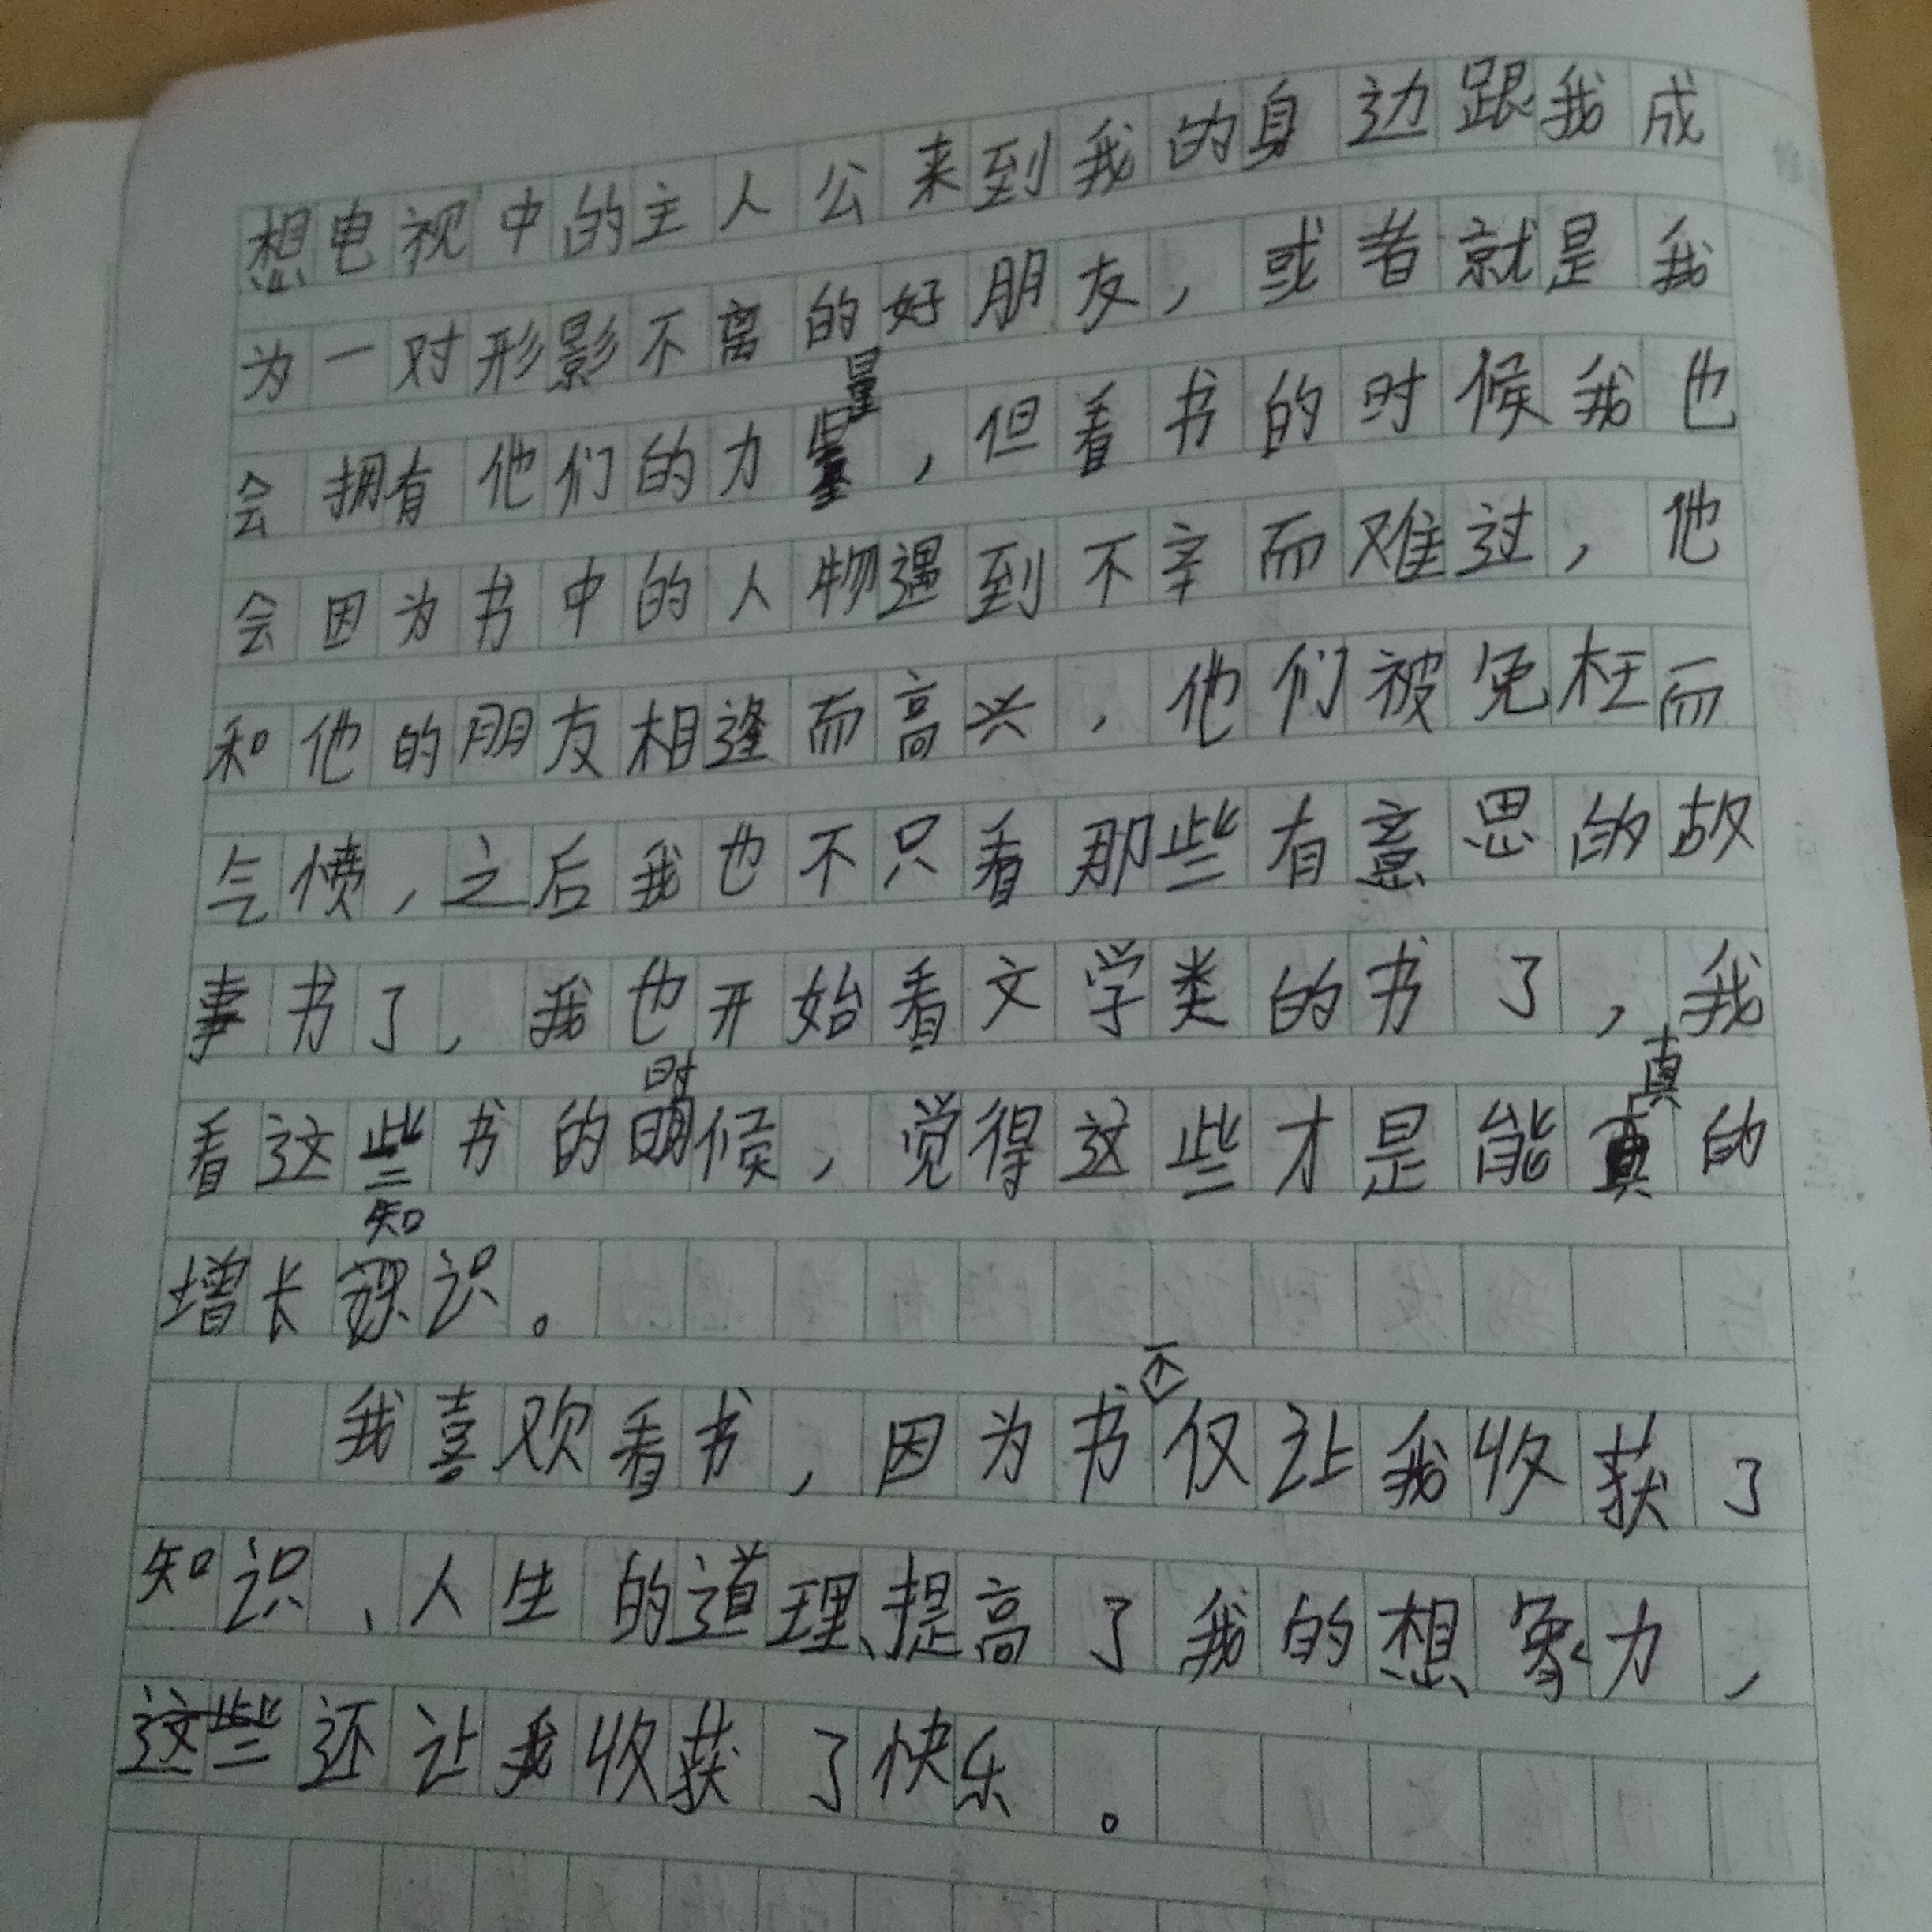 想电视中的主人公来到我的身边跟我成
为一对形影不离的好朋友，或者就是我
会拥有他们的力量，但看书的时候我也
会因为书中的人物遇到不辛而难过，他
和他的朋友相逢而高兴，他们被免枉而
气愤，之后我也不只看那些有意思的故
事书了，我也开始看文学类的书了，我
看这些书的时候，觉得这些才是能真的
增长知识。
我喜欢看书，因为书不仅让我收获了
知识、人生的道理、提高了我的想象力，
这些还让我收获了快乐。